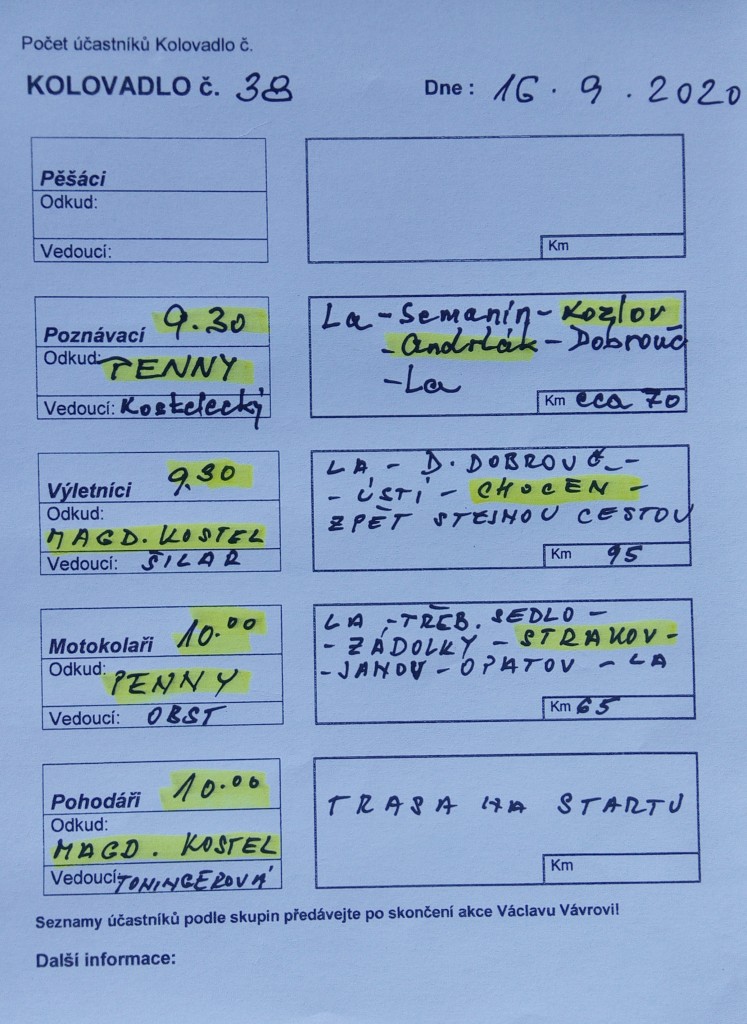 Počet účastníků Kolovadlo č.
KOLOVADLO č. 38 Dne : 16. 9. 2020
Pěšáci
Odkud:
Vedoucí:
Km
Poznávací 9.30
Odkud: PENNY
Vedoucí: Kostelecký
La - Semanín - Kozlov
- Andrlák - Dobrouč
- La
Km cca 70
Výletníci 9.30
Odkud:
MAGD. KOSTEL
Vedoucí: ŠILAR
LA - D. DOBROUČ -
- ÚSTÍ - CHOCEN -
ZPĚT STEJNOU CESTOU
Km 95
Motokolaři 10.00
Odkud: PENNY
Vedoucí: OBST
LA - TŘEB. SEDLO -
- ZÁDOLKY - STRAKOV -
- JANOV - OPATOV - LA
Km 65
Pohodáři 10.00
Odkud:
MAGD. KOSTEL
Vedoucí: TONINGEROVÁ
TRASA NA STARTU
Km
Seznamy účastníků podle skupin předávejte po skončení akce Václavu Vávrovi!
Další informace: